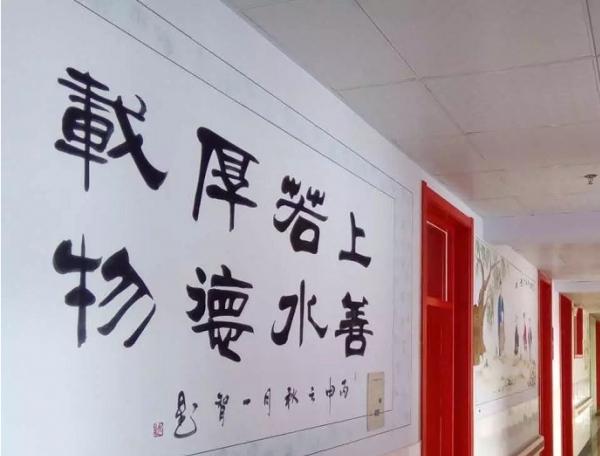 上善
若水
厚德
載物
丙申之秋月一智